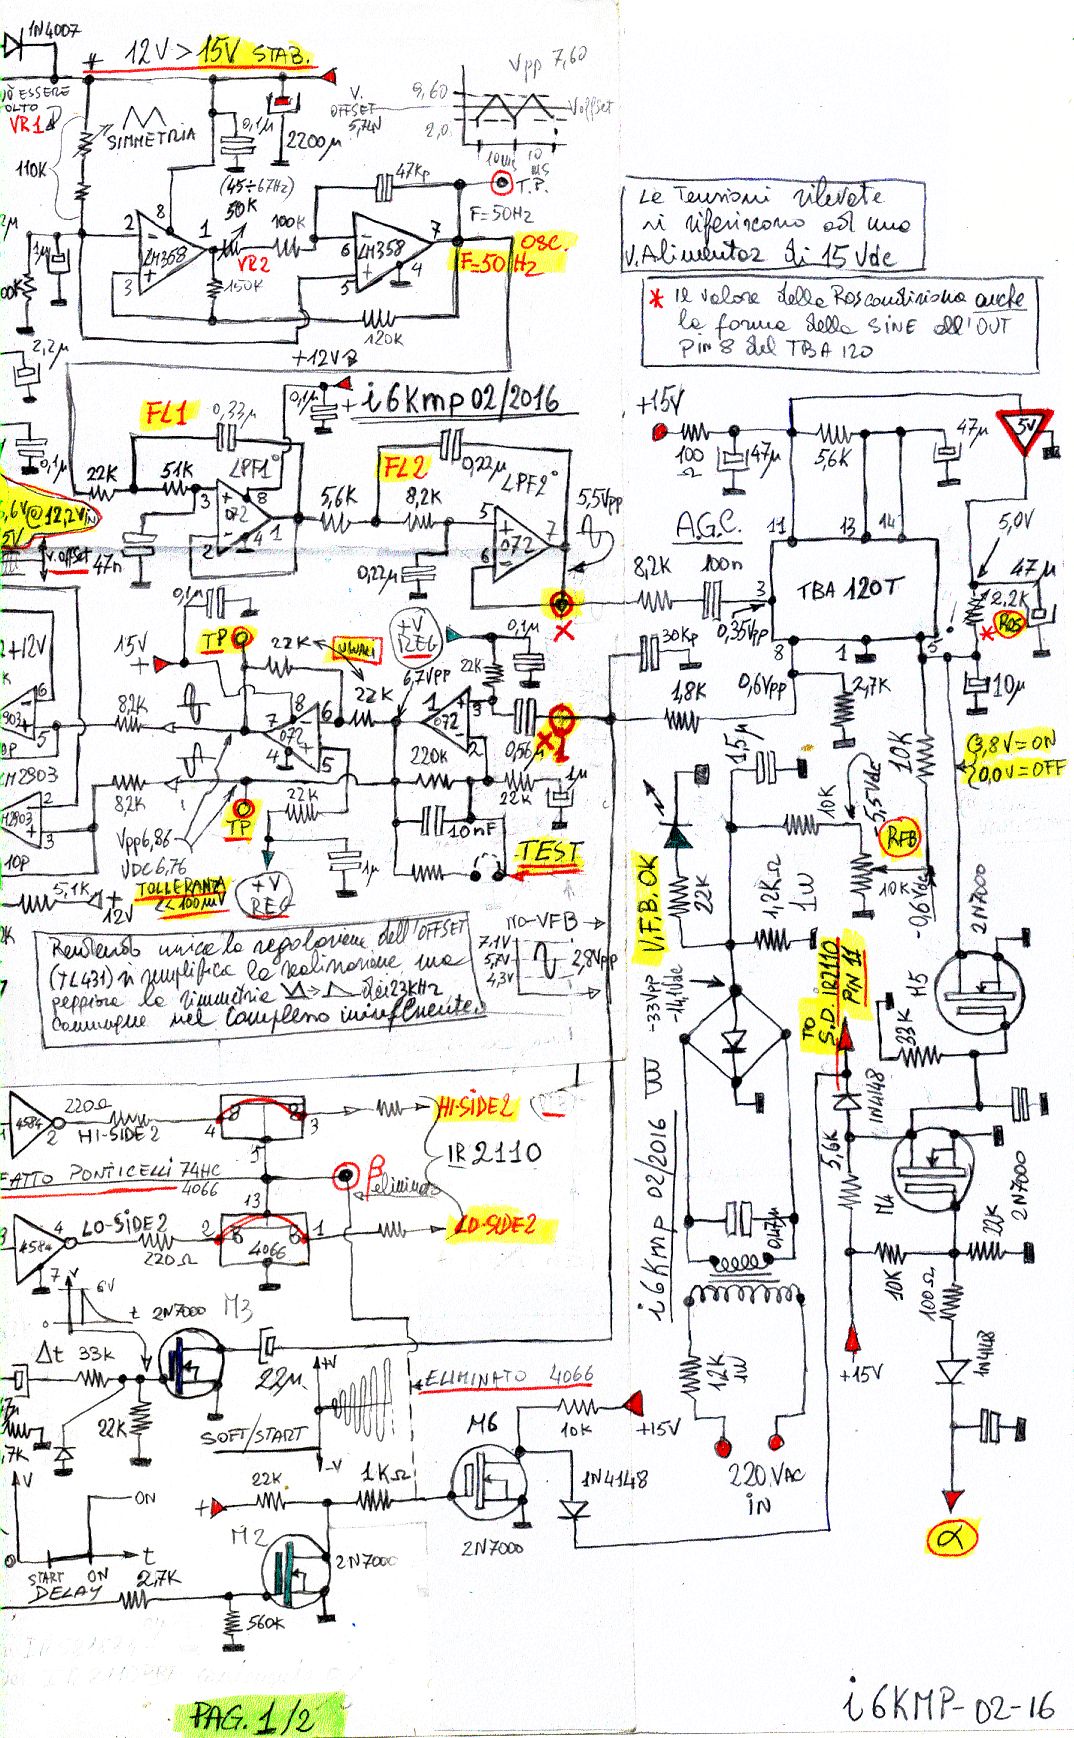 1N4007
* 12V > 15V STAB.
VR1
110K
SIMMETRIA
0,1µ
2200µ
V.
OFFSET
Vpp 7,60
9,60
2,0
Voffset
10ms
10
ms
47Kp
T.P.
F=50Hz
OSC.
F=50Hz
(45÷67Hz)
50K
VR2
100K
150K
120K
LM358
LM358
2
8
1
3
6
7
5
4
1µ
2,2µ
0,1µ
+12V
Le Tensioni rilevate
si riferiscono ad una
V.Alimentaz di 15 Vdc
* Il valore della Ros condiziona anche
la forma della SINE all'OUT
Pin 8 del TBA 120
i6Kmp 02/2016
FL1
0,33µ
22K
51K
LPF1°
072
3
8
2
4
1
47n
0,1µ
FL2
5,6K
8,2K
0,22µ
0,22µ
LPF2°
072
5
6
7
5,5Vpp
X
V.offset
5V
+15V
100
Ω
47µ
5,6K
47µ
5V
5,0V
A.G.C.
8,2K
100n
3
0,35Vpp
11
13
14
TBA 120T
8
1
5
2,2K
* Ros
47µ
10µ
30Kp
1,8K
0,6Vpp
2,7K
3,8V=ON
0,0V=OFF
15V
+
0,1µ
TP
22K
UGUALI
+V
REG
6,7Vpp
0,1µ
22K
22K
072
7
8
6
4
5
072
1
3
2
0,56µ
X
1
8,2K
8,2K
22K
220K
22K
1µ
10nF
TP
Vpp6,86
VDC6,76
+V
REG
1µ
TEST
TOLLERANZA
<100mV
5,1K
+
12V
Rendendo unica la regolazione dell'OFFSET
(TL431) si semplifica la realizzazione ma
peggiora la simmetria dei 23KHz
comunque nel complesso ininfluente.
NO-VFB
7,1V
5,7V
4,3V
2,8Vpp
V.F.B. OK
22K
1,5µ
10K
5,5Vdc
RFB
10K
10K
-0,6Vdc
1,2KΩ
1W
-33Vpp
-14,1Vdc
TO
S.D. IR2110
PIN 11
2N7000
M5
33K
1N4148
5,6K
2N7000
22K
10K
100Ω
1N4148
+15V
α
i6Kmp 02/2016
0,47µ
12K
1W
220 VAC
iN
4584
2
220Ω
HI-SIDE2
4
3
5
HI-SIDE2
IR2110
FATTO PONTICELLI 74HC
4066
β
eliminato
13
4584
4
7
LO-SIDE2
220Ω
2
1
4066
LO-SIDE2
V
6V
t
2N7000
M3
Δt
33K
22K
22µ
SOFT/START
+V
-V
ELIMINATO 4066
M6
10K
+15V
1N4148
2N7000
+
22K
1KΩ
M2
2N7000
V
ON
t
START
ON
DELAY
2,7K
560K
PAG. 1/2
i6KMP-02-16